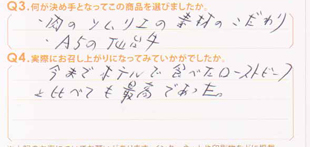 Q3.何が決め手となってこの商品を選びましたか。
・肉のソムリエの素材のこだわり
・A5の仙台牛
Q4.実際にお召し上がりになってみていかがでしたか。
今までホテルで食べたローストビーフ
と比べても最高であった。